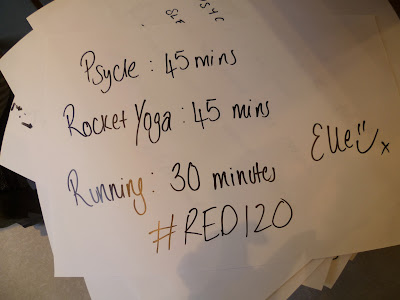 Psycle : 45 mins
Rocket Yoga : 45 mins
Running : 30 minutes
#RED120
Elle x